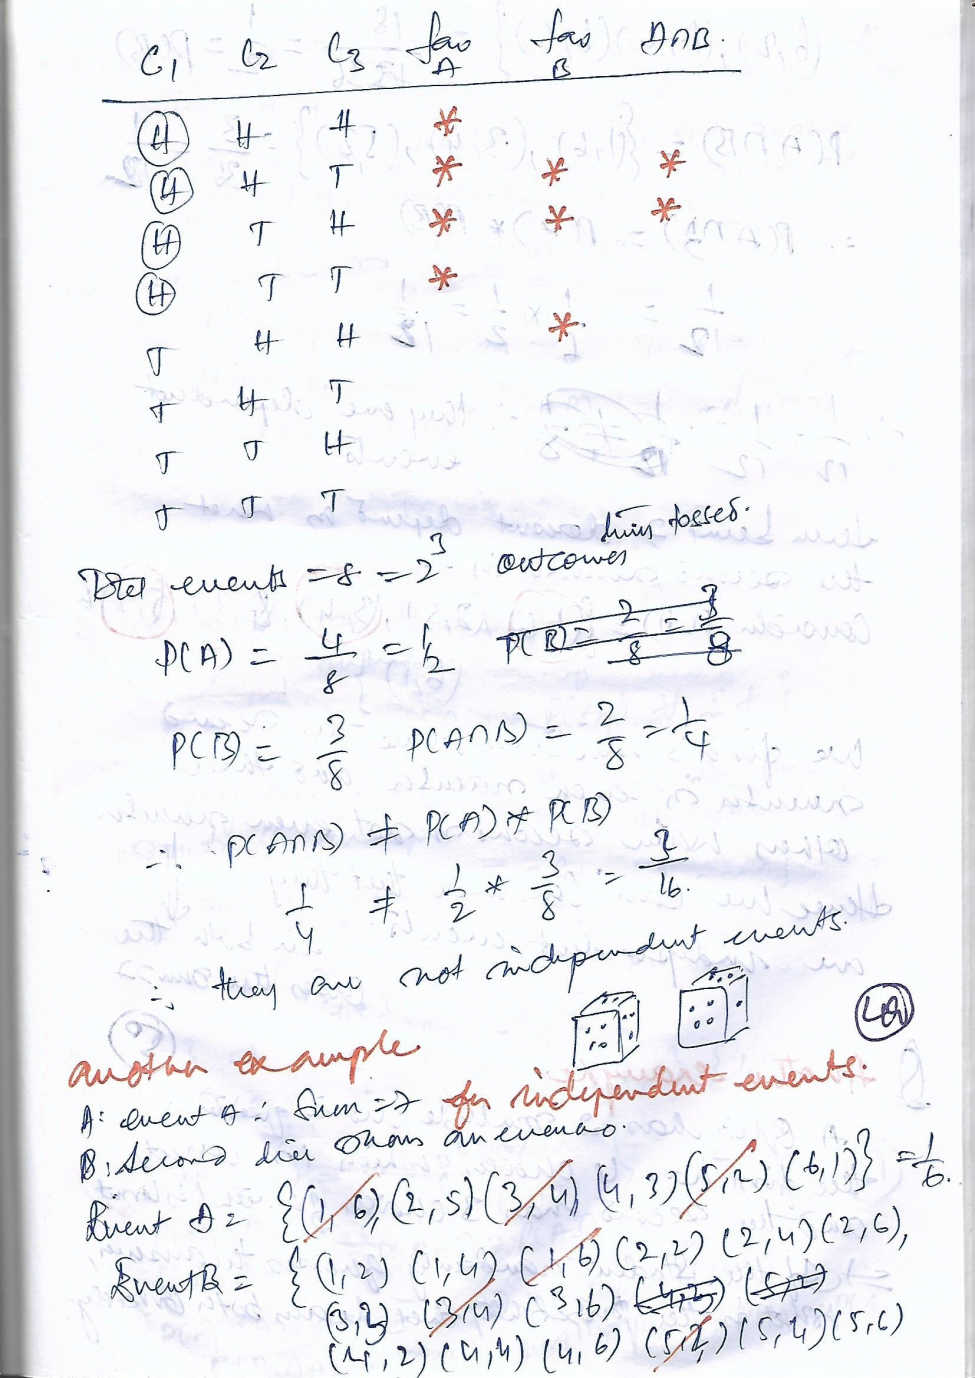 C1 C2 C3 fav A fav B A∩B.
H H H. *
H H T * * *
H T H * * *
H T T *
T H H *
T H T
T T H
T T T
tossed.
Total events = 8 = 2^3 outcomes
P(A) = 4/8 = 1/2 P(B) = 2/8 = 3/8
P(B) = 3/8 P(A∩B) = 2/8 = 1/4
∴ P(A∩B) ≠ P(A) * P(B)
1/4 ≠ 1/2 * 3/8 = 3/16.
∴ they are not independent events.
another example for independent events.
A: event A: Sum = 7
B: Second die shows an even no.
Event A = {(1,6), (2,5) (3,4) (4,3) (5,2) (6,1)} = 1/6.
Event B = {(1,2) (1,4) (1,6) (2,2) (2,4) (2,6),
(3,2) (3,4) (3,6) (4,2) (5,2)
(4,2) (4,4) (4,6) (5,2) (5,4) (5,6)